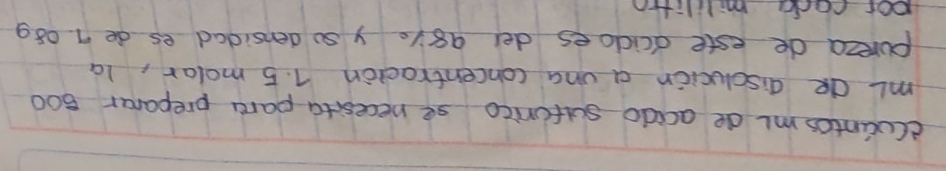 ¿Cuántos mL de acido sulfúrico se necesita para preparar 500
mL de disolución a una concentración 1.5 molar, la
pureza de este ácido es del 98% y su densidad es de 1.08g
por cada mililitro